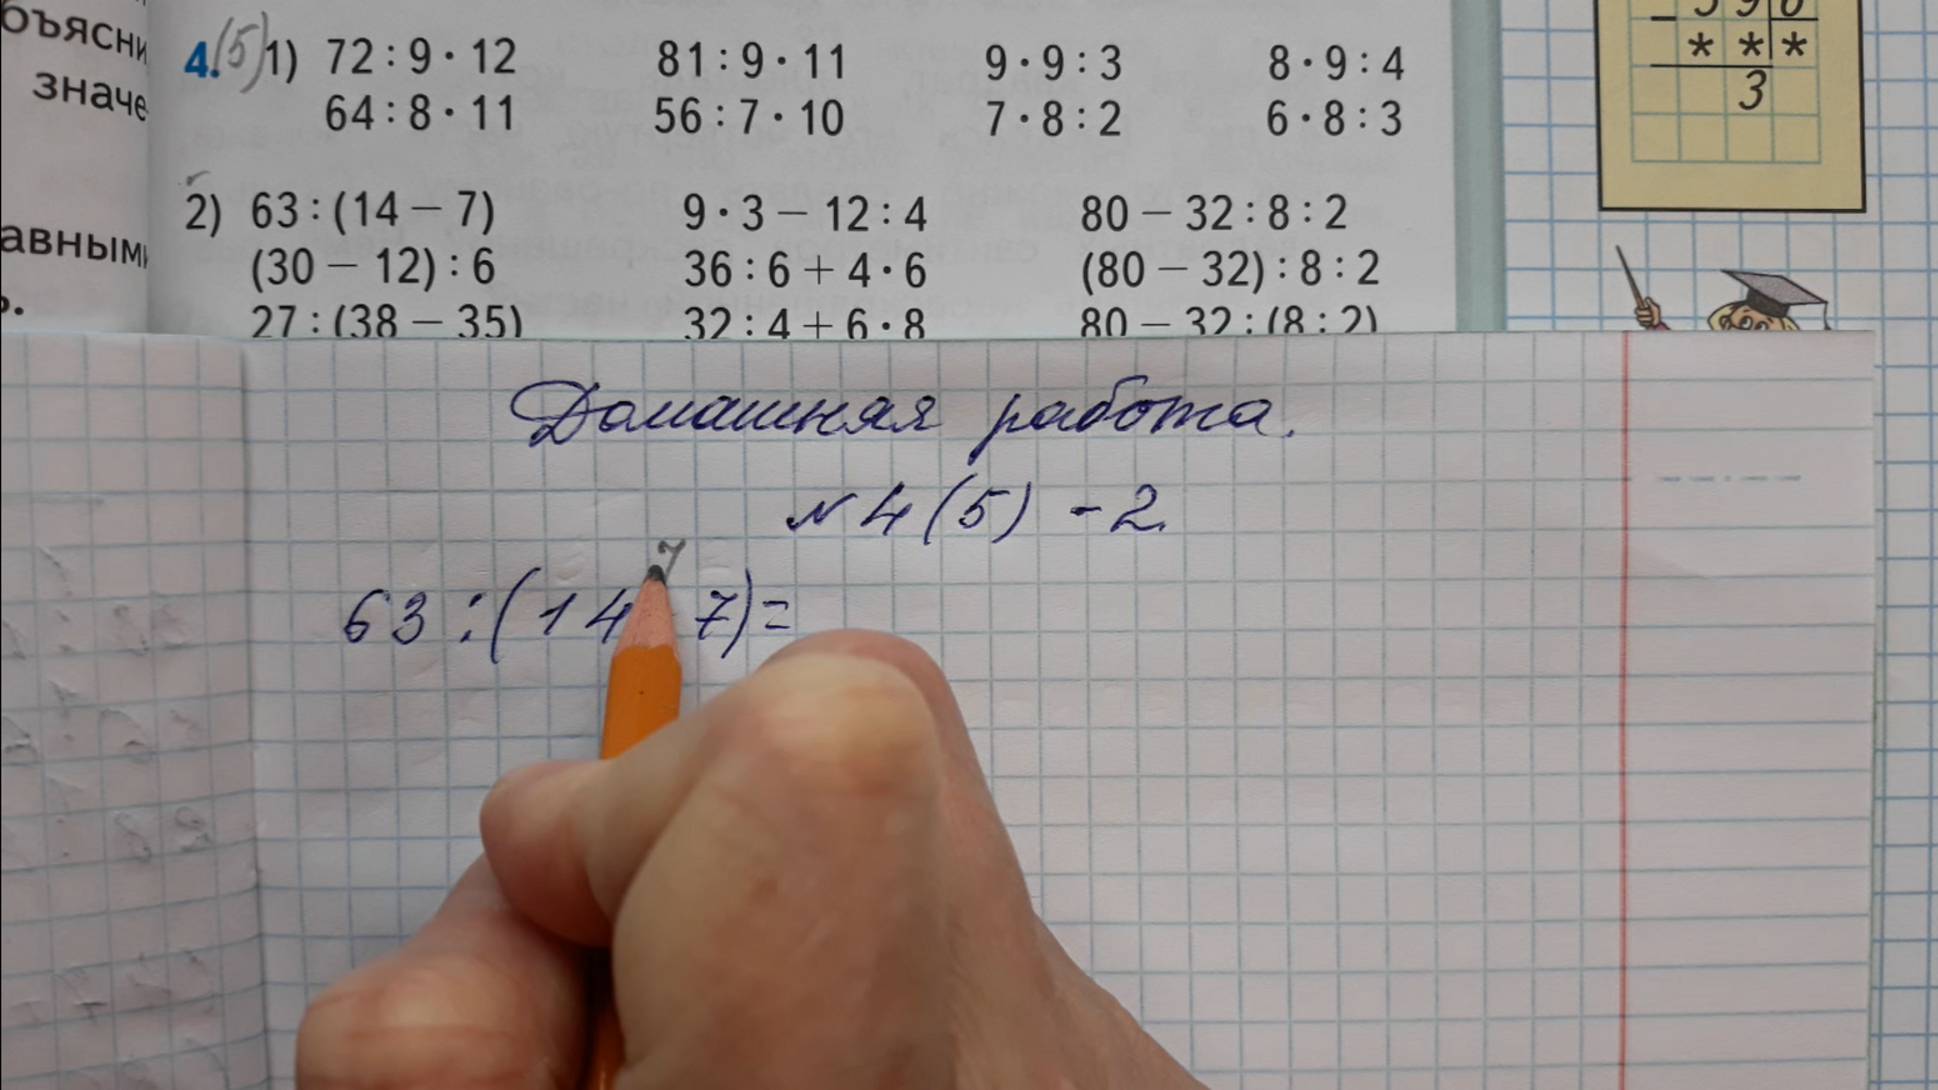 4. (5) 1) 72 : 9 · 12 81 : 9 · 11 9 · 9 : 3 8 · 9 : 4
64 : 8 · 11 56 : 7 · 10 7 · 8 : 2 6 · 8 : 3
2) 63 : (14 − 7) 9 · 3 − 12 : 4 80 − 32 : 8 : 2
(30 − 12) : 6 36 : 6 + 4 · 6 (80 − 32) : 8 : 2
27 : (38 − 35) 32 : 4 + 6 · 8 80 − 32 : (8 : 2)
* * *
3
Домашняя работа.
№ 4 (5) - 2.
7
63 : (14 7) =